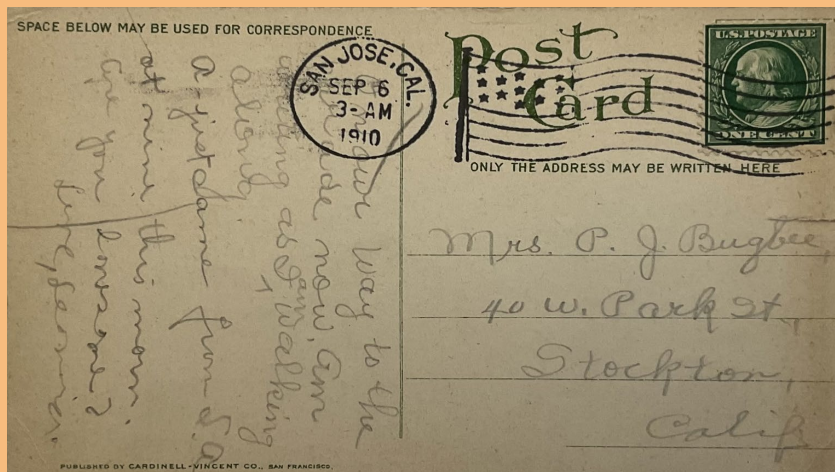 SPACE BELOW MAY BE USED FOR CORRESPONDENCE
Post
Card
SAN JOSE, CAL.
SEP 6
3-AM
1910
U.S. POSTAGE
ONE CENT
ONLY THE ADDRESS MAY BE WRITTEN HERE
our way to the
now. Am
as I am walking
along.
A. just came from S.A.
at nine this morn.
Are you
Mrs. P. J. Bugbee,
40 W. Park St,
Stockton,
Calif
PUBLISHED BY CARDINELL-VINCENT CO., SAN FRANCISCO.